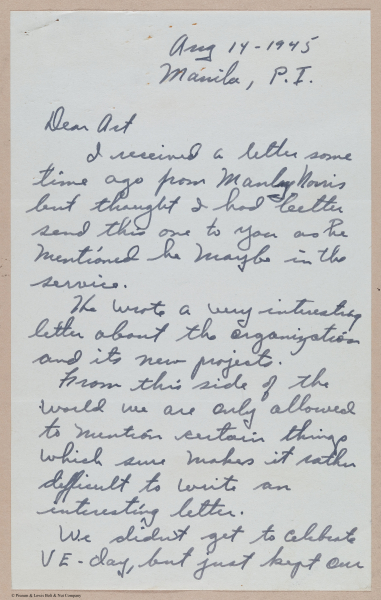 Aug 14-1945
Manila, P.I.
Dear Art
I received a letter some
time ago from Manley Norris
but thought I had better
send this one to you as he
mentioned he maybe in the
service.
He wrote a very interesting
letter about the organization
and its new projects.
From this side of the
world we are only allowed
to mention certain things
which sure makes it rather
difficult to write an
interesting letter.
We didn't get to celebrate
VE-day, but just kept our
© Person & Lewis Bolt & Nut Company